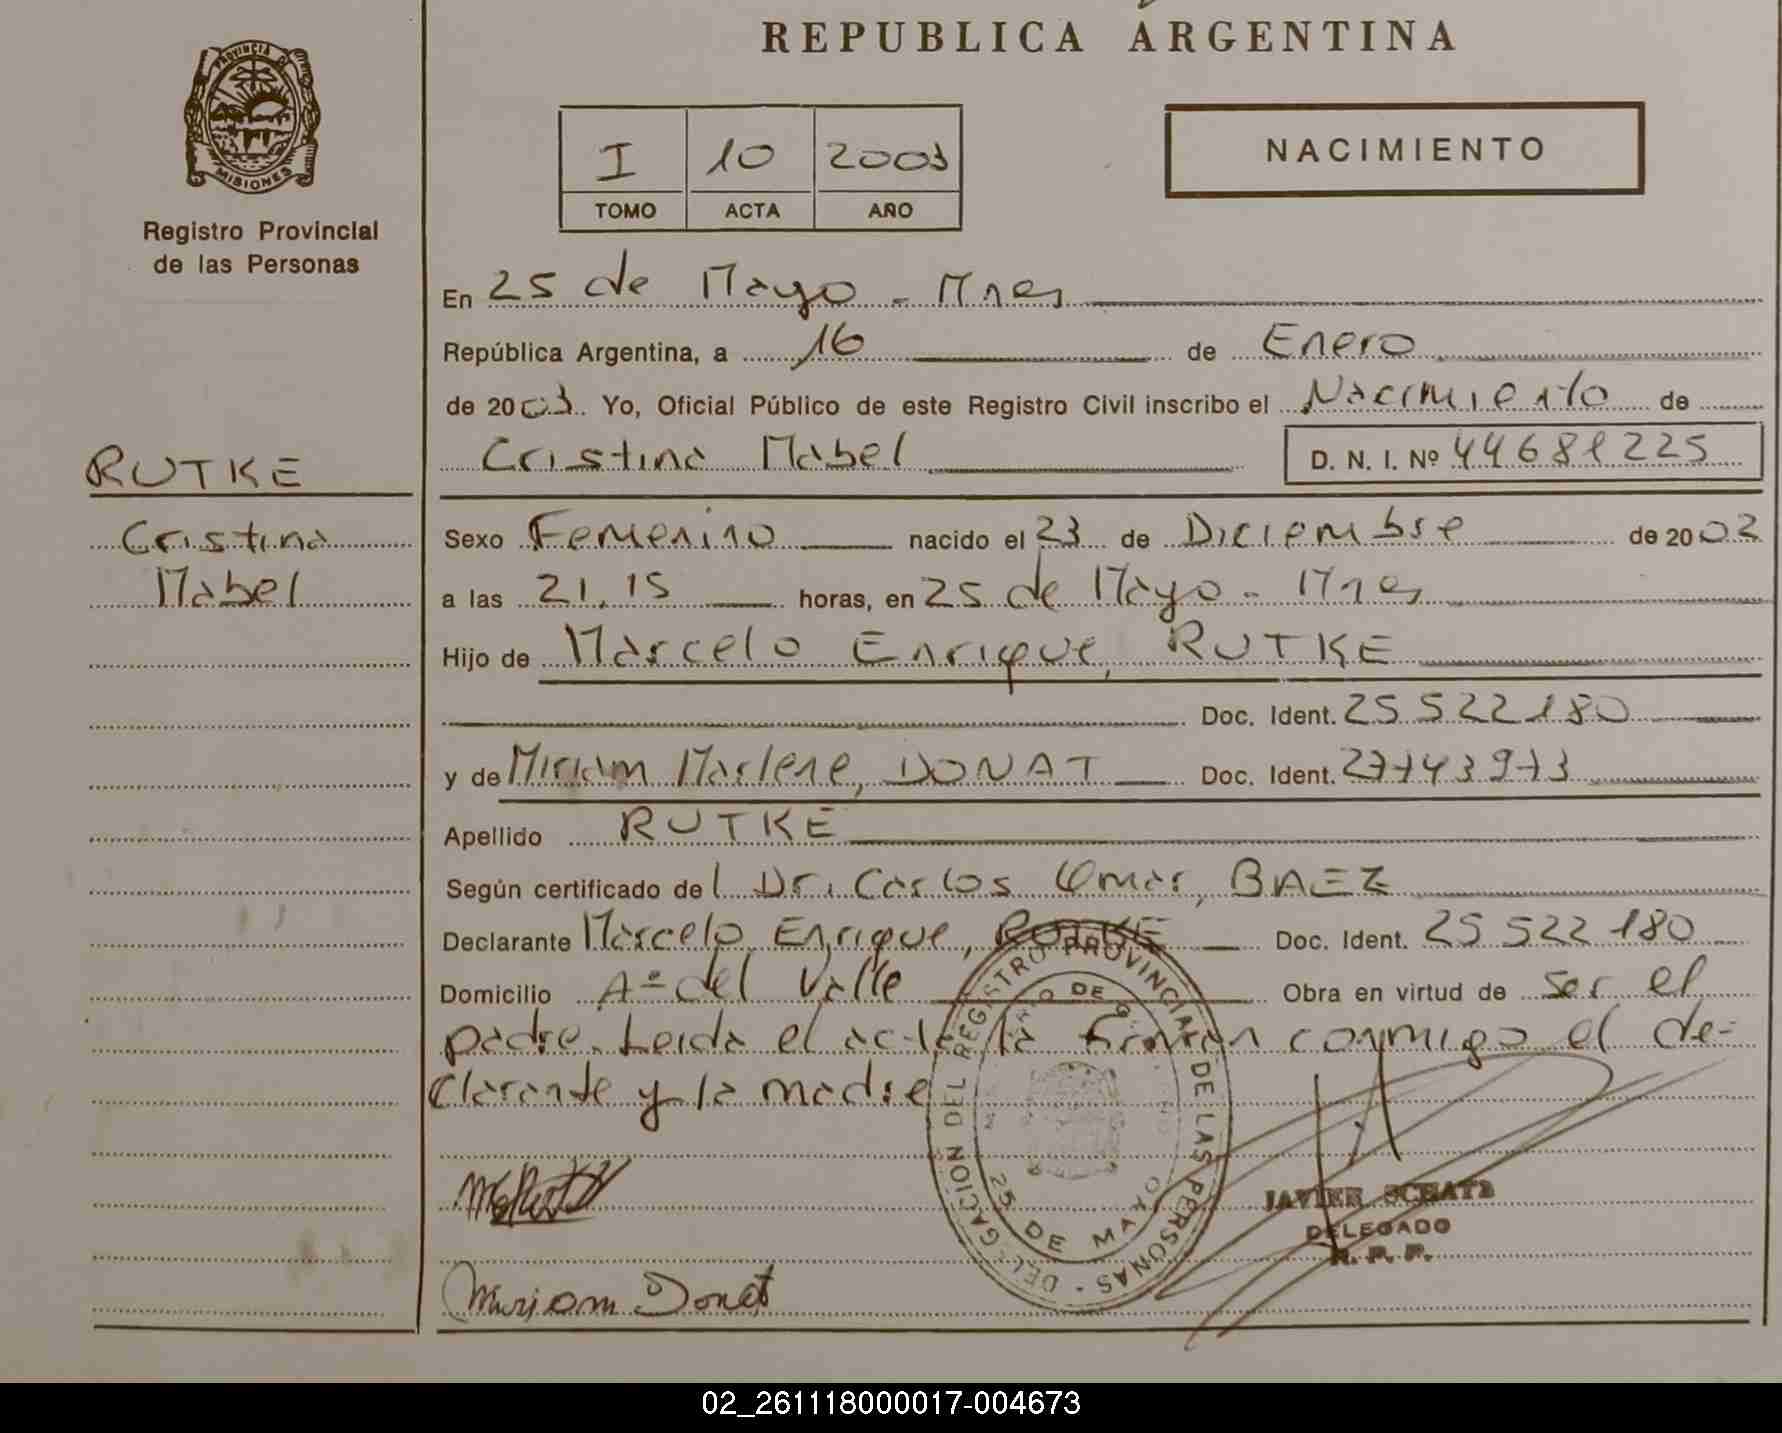 REPUBLICA ARGENTINA
PROVINCIA DE
MISIONES
Registro Provincial
de las Personas
I 10 2003
TOMO ACTA AÑO
NACIMIENTO
En 25 de Mayo - Mnes
República Argentina, a 16 de Enero
de 2003. Yo, Oficial Público de este Registro Civil inscribo el Nacimiento de
Cristina Mabel D. N. I. Nº 44681225
RUTKE
Cristina
Mabel
Sexo Femenino nacido el 23 de Diciembre de 2002
a las 21,15 horas, en 25 de Mayo - Mnes
Hijo de Marcelo Enrique, RUTKE
Doc. Ident. 25522180
y de Miriam Marlene, DONAT Doc. Ident. 27743973
Apellido RUTKE
Según certificado del Dr. Carlos Omar, BAEZ
Declarante Marcelo Enrique, RUTKE Doc. Ident. 25522180
Domicilio Aº del Valle Obra en virtud de ser el
padre. Leida el acta la firman conmigo el de=
clarante y la madre
DELEGACION DEL REGISTRO PROVINCIAL DE LAS PERSONAS -
25 DE MAYO
JAVIER SCHATZ
DELEGADO
R. P. P.
Miriam Donat
02_261118000017-004673